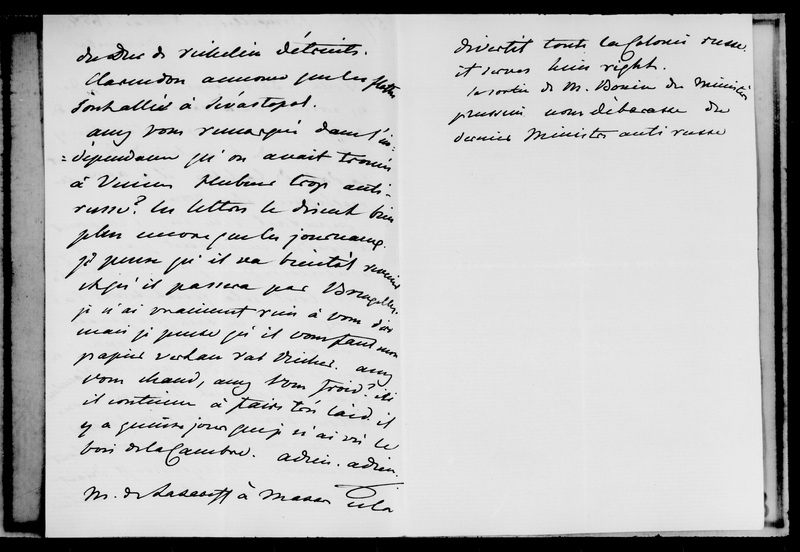 du Duc de Richelieu détruits.
Clarendon annonce que les flottes
sont alliés à Sévastopol.
avez vous remarqué dans l'in-
=dépendance qu'on avait trouvé
à Vienne Hubner trop anti-
russe? les lettres le disent bien
plus encore que les journaux.
je pense qu'il va bientôt revenir
et qu'il passera par Bruxelles.
je n'ai vraiment rien à vous dire
mais je pense qu'il vous faut mon
papier
avez
vous chaud, avez vous froid? ici
il continue à faire très laid. il
y a quinze jours que je n'ai vu le
bois de la Cambre. adieu. adieu.
M. de à
divertit toute la Colonie russe.
it serves him right.
la sortie de M. Bonin du Ministère
prussien nous débarasse du
dernier Ministre anti russe